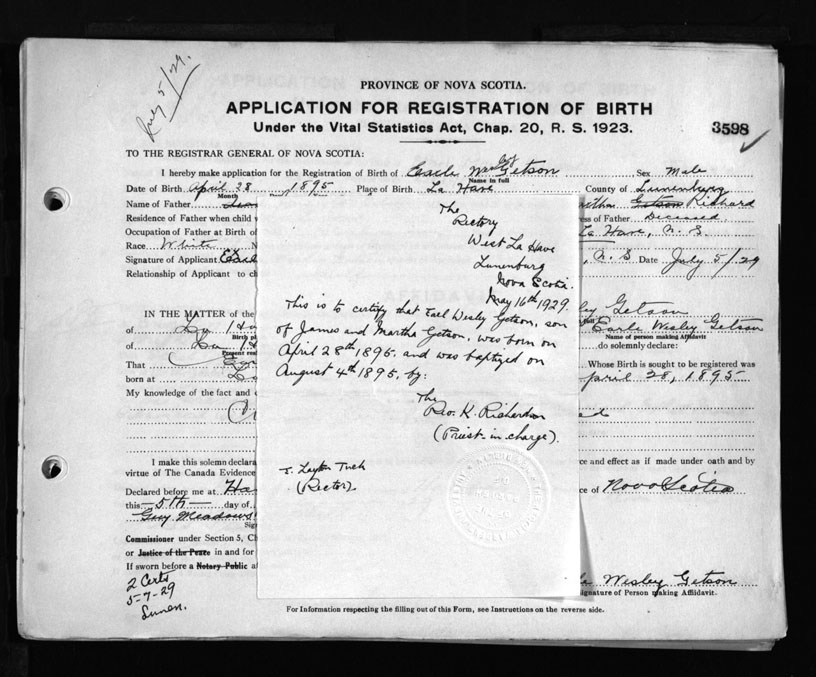 July 5/29.
PROVINCE OF NOVA SCOTIA.
APPLICATION FOR REGISTRATION OF BIRTH
Under the Vital Statistics Act, Chap. 20, R. S. 1923.
3598
TO THE REGISTRAR GENERAL OF NOVA SCOTIA:
I hereby make application for the Registration of Birth of Earle Getson Sex Male
Name in full
Date of Birth April 28 1895 Place of Birth La Have County of Lunenburg
Month
Name of Father Getson Richard
Residence of Father when child ess of Father Deceased
Occupation of Father at Birth of La Have, N. S.
Race White N
Signature of Applicant Earl N. S. Date July 5/29
Relationship of Applicant to ch
The
Rectory
West La Have
Lunenburg
Nova Scotia.
May 16th 1929.
This is to certify that Earl Wesley Getson, son
of James and Martha Getson, was born on
April 28th 1895. and was baptized on
August 4th 1895, by:
The
Rev. K. Richardson
(Priest-in-charge).
T. Layton Tuck
(Rector).
IN THE MATTER of the ley Getson
of La Earle Wesley Getson
Birth pl Name of person making Affidavit
of La do solemnly declare:
Present resi
That Whose Birth is sought to be registered was
born at April 28, 1895
My knowledge of the fact and
ed
I make this solemn declara ce and effect as if made under oath and by
virtue of The Canada Evidence
Declared before me at Ha ce of Nova Scotia
this 5th day of
Guy Meadows
Sig
Commissioner under Section 5, Ch
or Justice of the Peace in and for
If sworn before a Notary Public a
le Wesley Getson
ignature of Person making Affidavit.
2 Certs
5-7-29
Lunen.
For Information respecting the filling out of this Form, see Instructions on the reverse side.